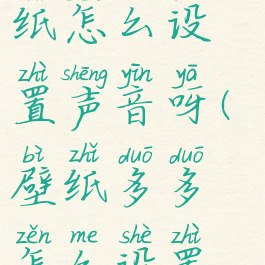 纸怎么设
zhì shēng yīn yā
置声音呀(
bì zhǐ duō duō
壁纸多多
zěn me shè zhì
怎么设置